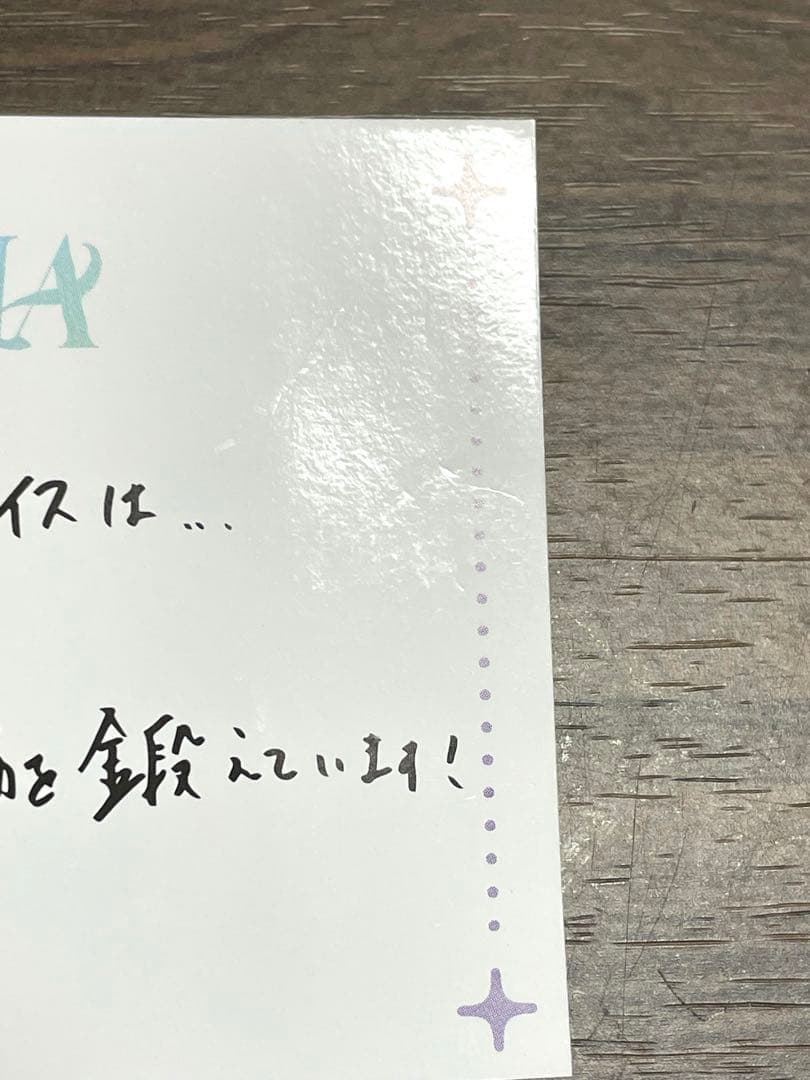 A
イスは...
を鍛えています!